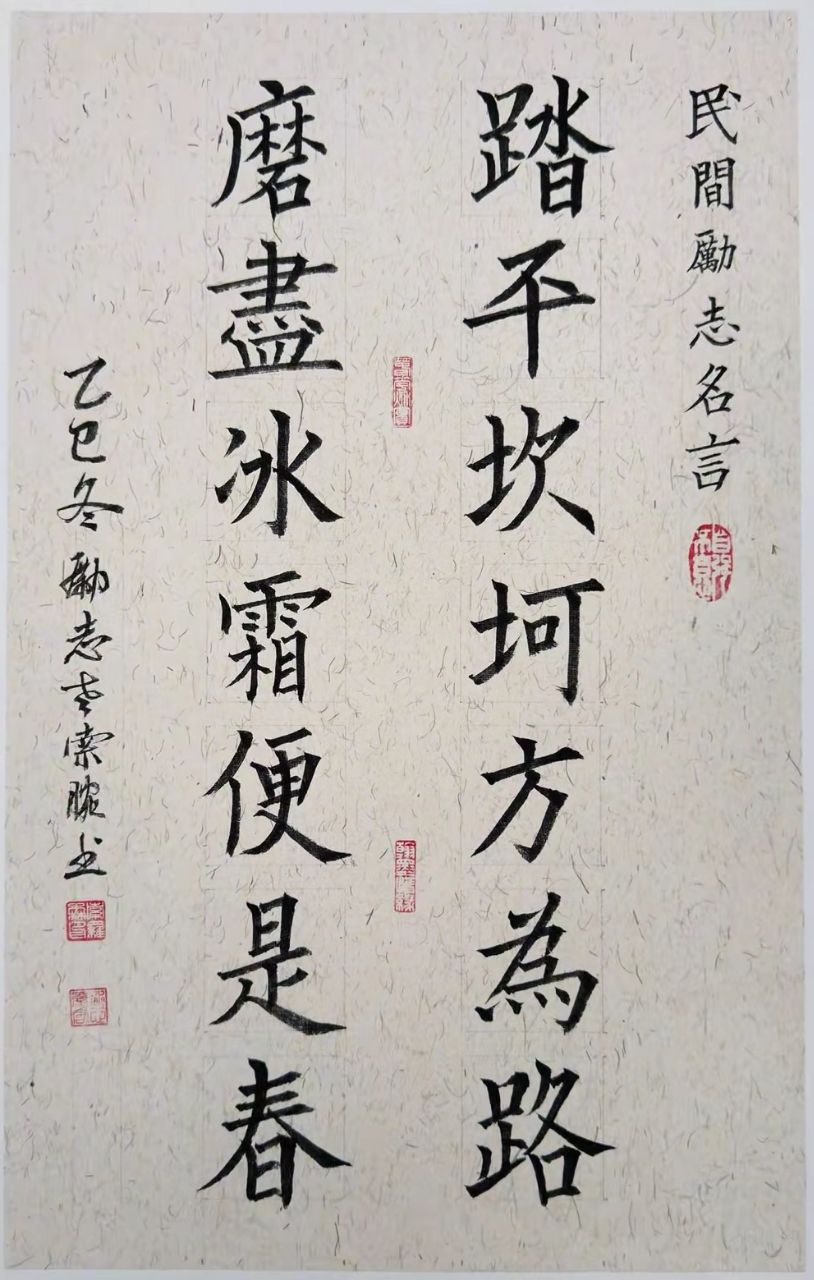 民間勵志名言
踏平坎坷方為路
磨盡冰霜便是春
乙巳冬勵志老索腕书